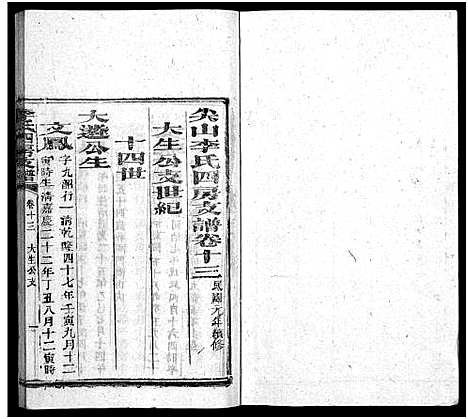 尖山李氏四房支譜卷十三 民國元年續修
大生公支世紀
十四世
大遜公生
文鳳 字九韶行一清乾隆四十七年壬寅九月十二
寅時生清嘉慶二十二年丁丑八月十二寅時
李氏四房支譜 卷十三 大生公支 一